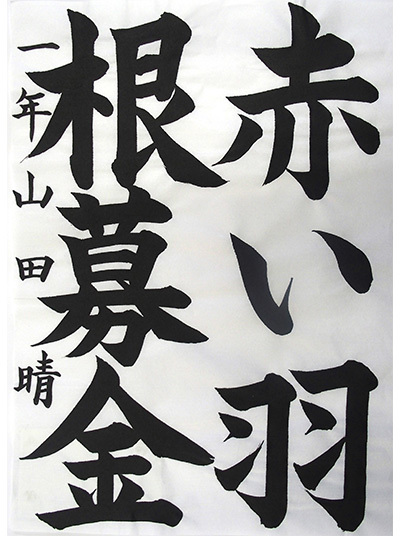 赤い羽
根募金
一年山田晴